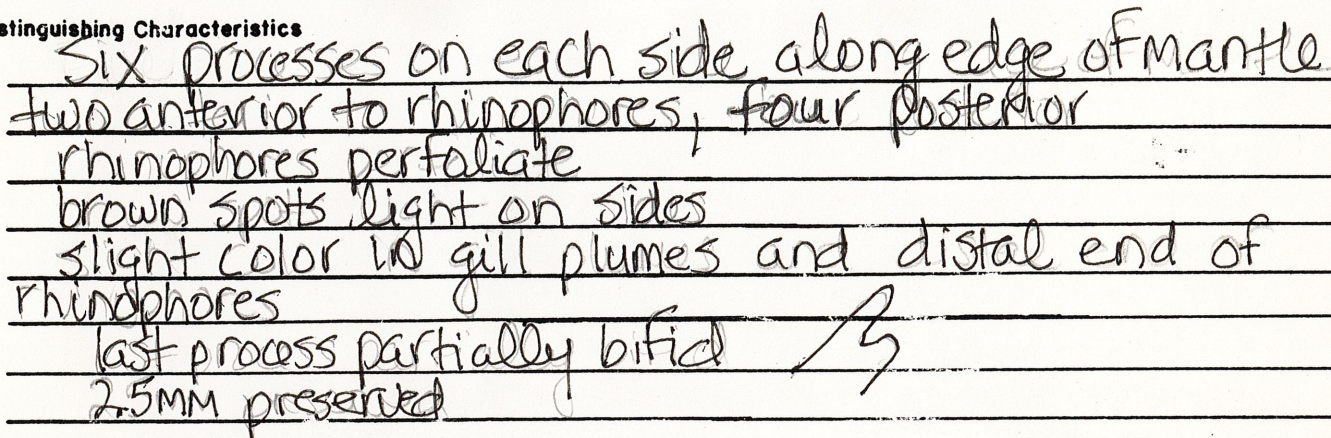 stinguishing Characteristics
Six processes on each side along edge of mantle
two anterior to rhinophores, four posterior
rhinophores perfoliate
brown spots light on sides
slight color in gill plumes and distal end of
rhinophores
last process partially bifid
2.5MM preserved